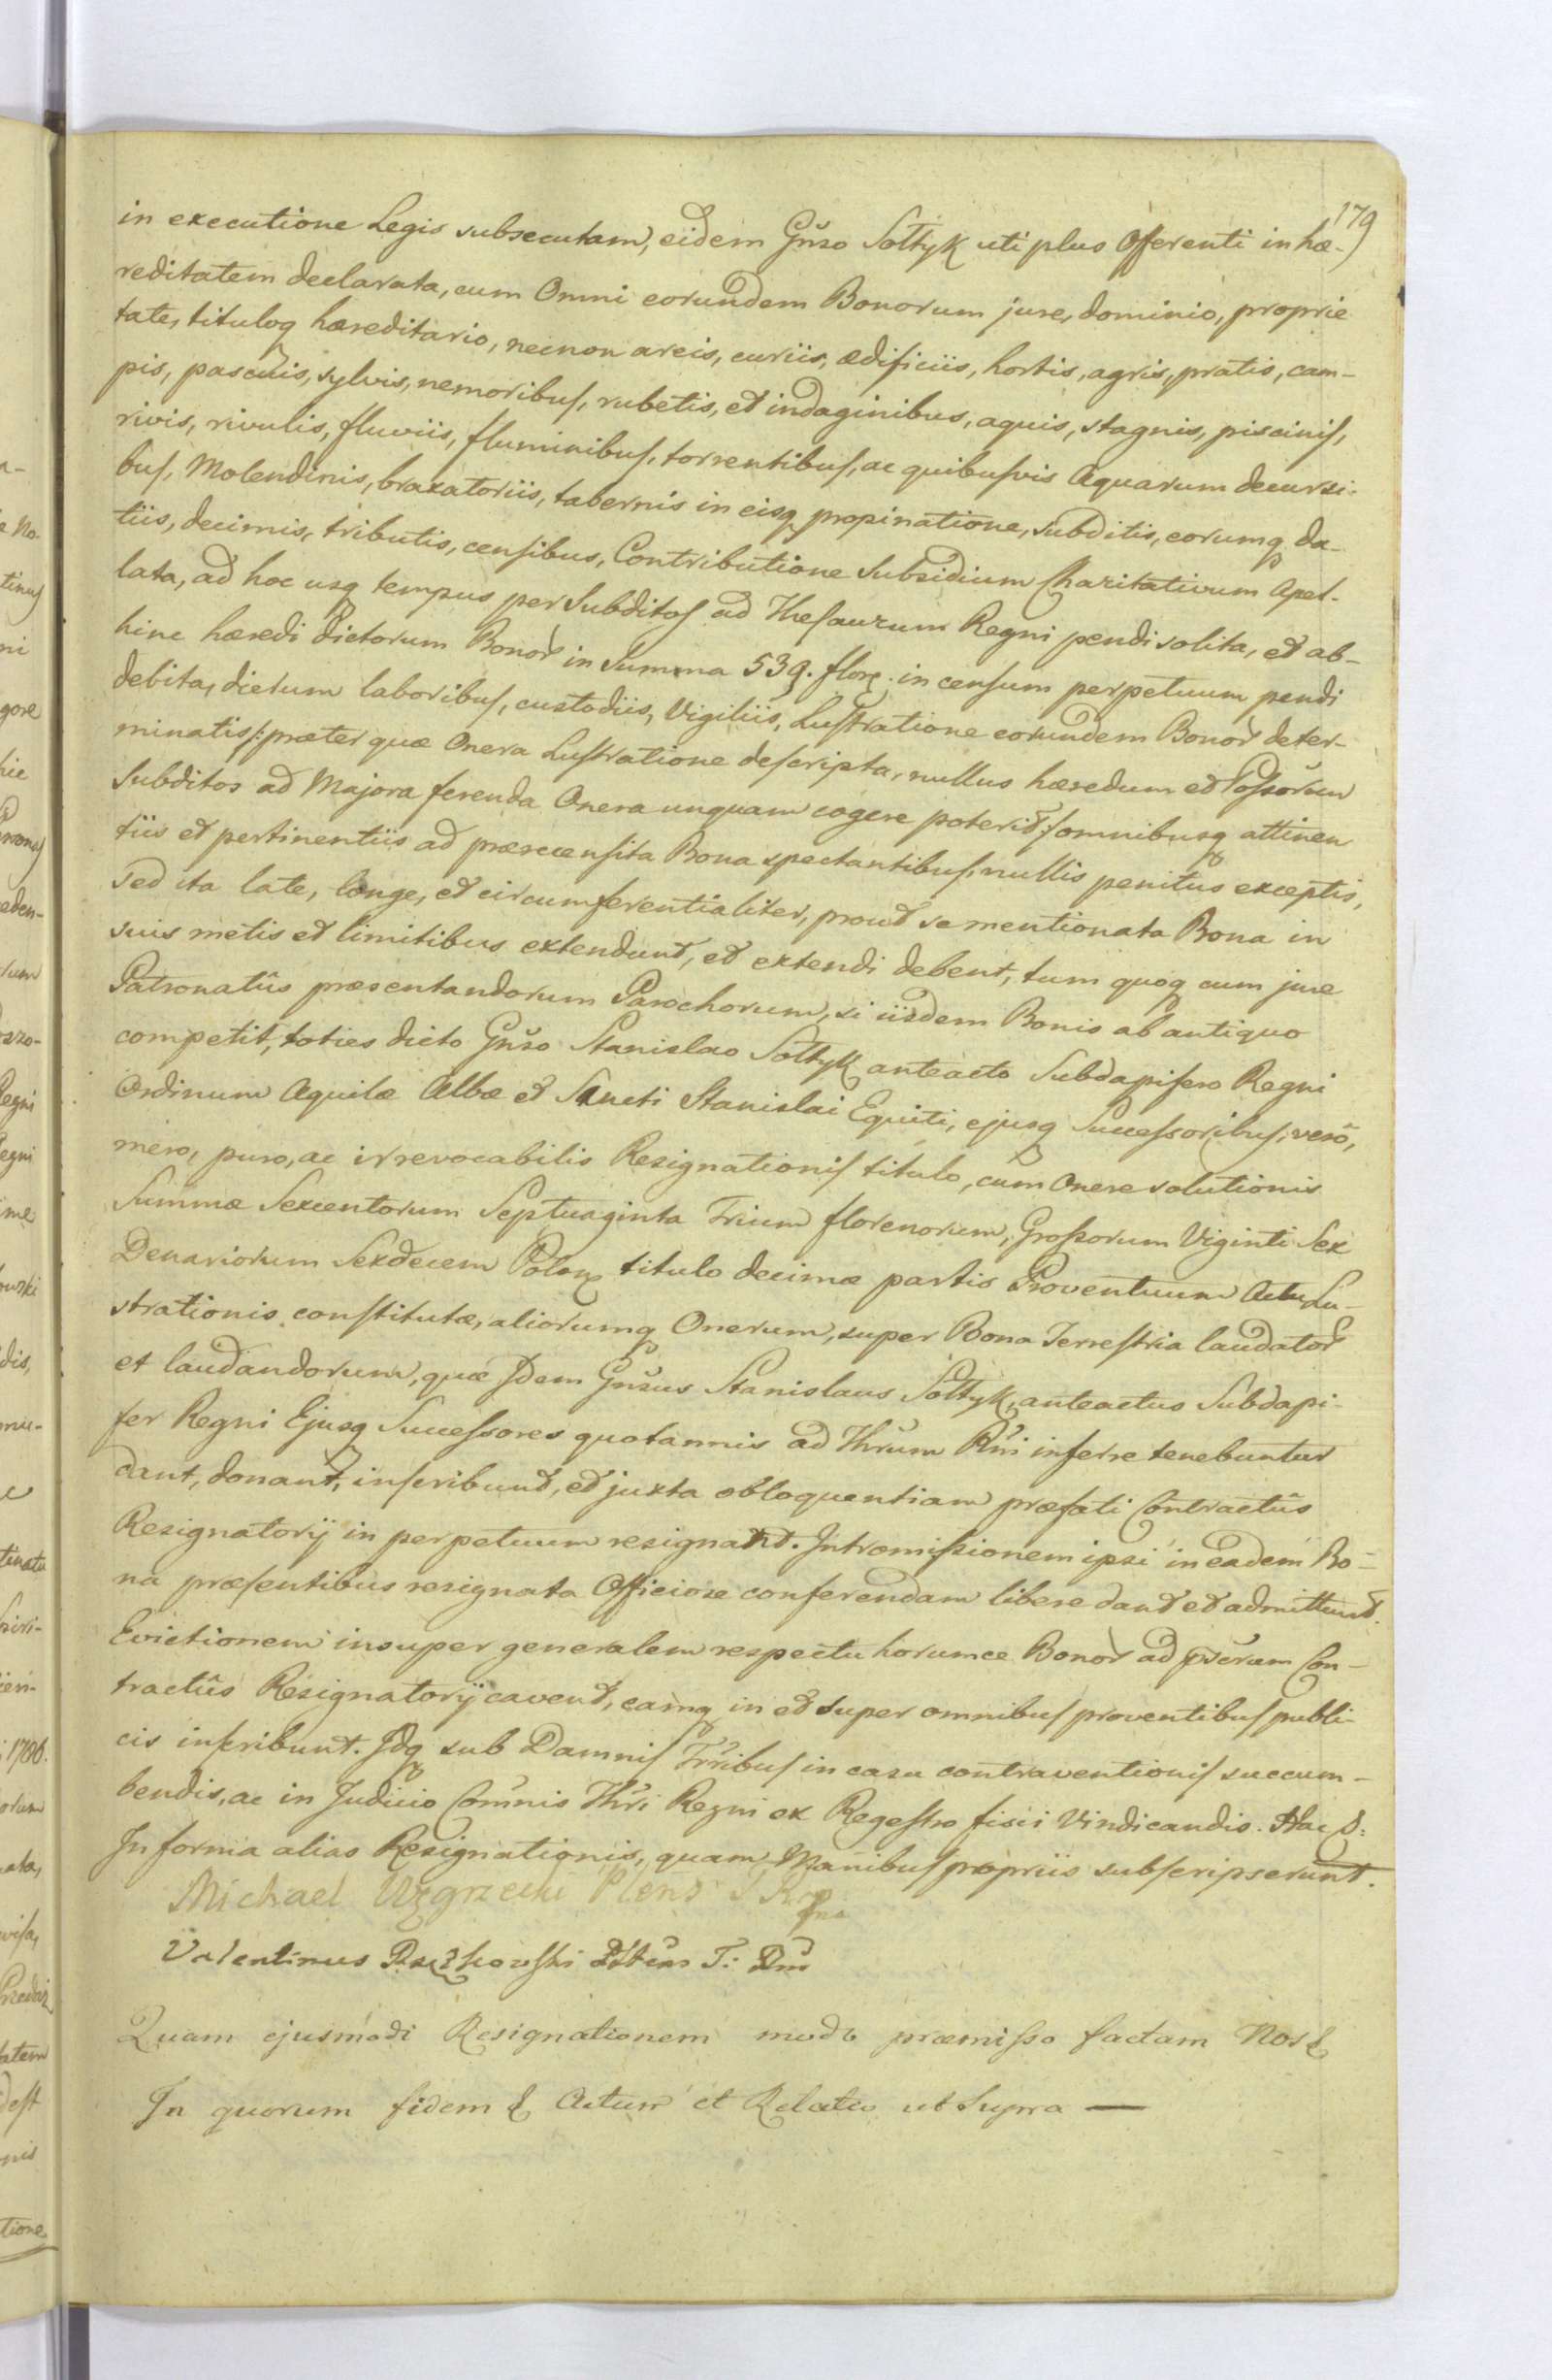 179
in executione Legis subsecutam, eidem Gnso Sołtyk uti plus Offerenti in hæ-
reditatem declarata, cum Omni eorundem Bonorum jure, dominio, proprie
tate, tituloq hæreditario, necnon areis, curiis, ædificiis, hortis, agris, pratis, cam-
pis, pascuis, sylvis, nemoribus, rubetis, et indaginibus, aquis, stagnis, piscinis,
rivis, rivulis, fluviis, fluminibus, torrentibus, ac quibusvis Aquarum decursi-
bus, Molendinis, braxatoriis, tabernis in eisq propinatione, subditis, eorumq da-
tiis, decimis, tributis, censibus, Contributione Subsidium Charitativum Apel-
lata, ad hoc usq tempus per Subditos ad Thesaurum Regni pendi solita, et ab-
hinc hæredi dictorum Bonor in Summa 539. flor. in censum perpetuum pendi
debita, dictum laboribus, custodiis, Vigiliis, Lustratione eorundem Bonor deter-
minatis /: præter quæ Onera Lustratione descripta, nullus hæredum et Possorum
Subditos ad Majora ferenda Onera unquam cogere poterit :/ omnibusq attinen
tiis et pertinentiis ad præcensita Bona spectantibus, nullis penitus exceptis,
sed ita late, longe, et circumferentialiter, prout se mentionata Bona in
suis metis et limitibus extendunt, et extendi debent, tum quoq cum jure
Patronatûs præsentandorum Parochorum, si iisdem Bonis ab antiquo
competit, toties dicto Gnso Stanislao Sołtyk anteacto Subdapifero Regni
Ordinum Aquilæ Albæ et Sancti Stanislai Equiti, ejusq Successoribus, verô,
mero, puro, ac irrevocabilis Resignationis titulo, cum Onere solutionis
Summæ Sexcentorum Septuaginta Trium florenorum, Grossorum Viginti Sex
Denariorum Sexdecem Polon titulo decimæ partis Proventuum Actu Lu-
strationis constitutæ, aliorumq Onerum, super Bona Terrestria laudator
et laudandorum, quæ Idem Gnsus Stanislaus Sołtyk, anteactus Subdapi-
fer Regni Ejusq Successores quotannis ad Thrum Rni inferre tenebuntur
dant, donant, inscribunt, et juxta obloquentiam præfati Contractûs
Resignatorij in perpetuum resignant. Intromissionem ipsi in eadem Bo-
na præsentibus resignata Officiose conferendam libere dant et admittunt.
Evictionem insuper generalem respectu horumce Bonor ad prærum Con-
tractûs Resignatorij cavent, eamq in et super omnibus proventibus publi-
cis inscribunt. Idq sub Damnis Trribus in casu contraventionis succum-
bendis, ac in Judicio Comnis Thri Regni ex Regestro fisci Vindicandis. Hac S:
In forma alias Resignationis, quam Manibus propriis subscripserunt.
Michael
Valentinus
Quam ejusmodi Resignationem modo præmisso factam Nos &
In quorum fidem & Actum et Relatio ut Supra —